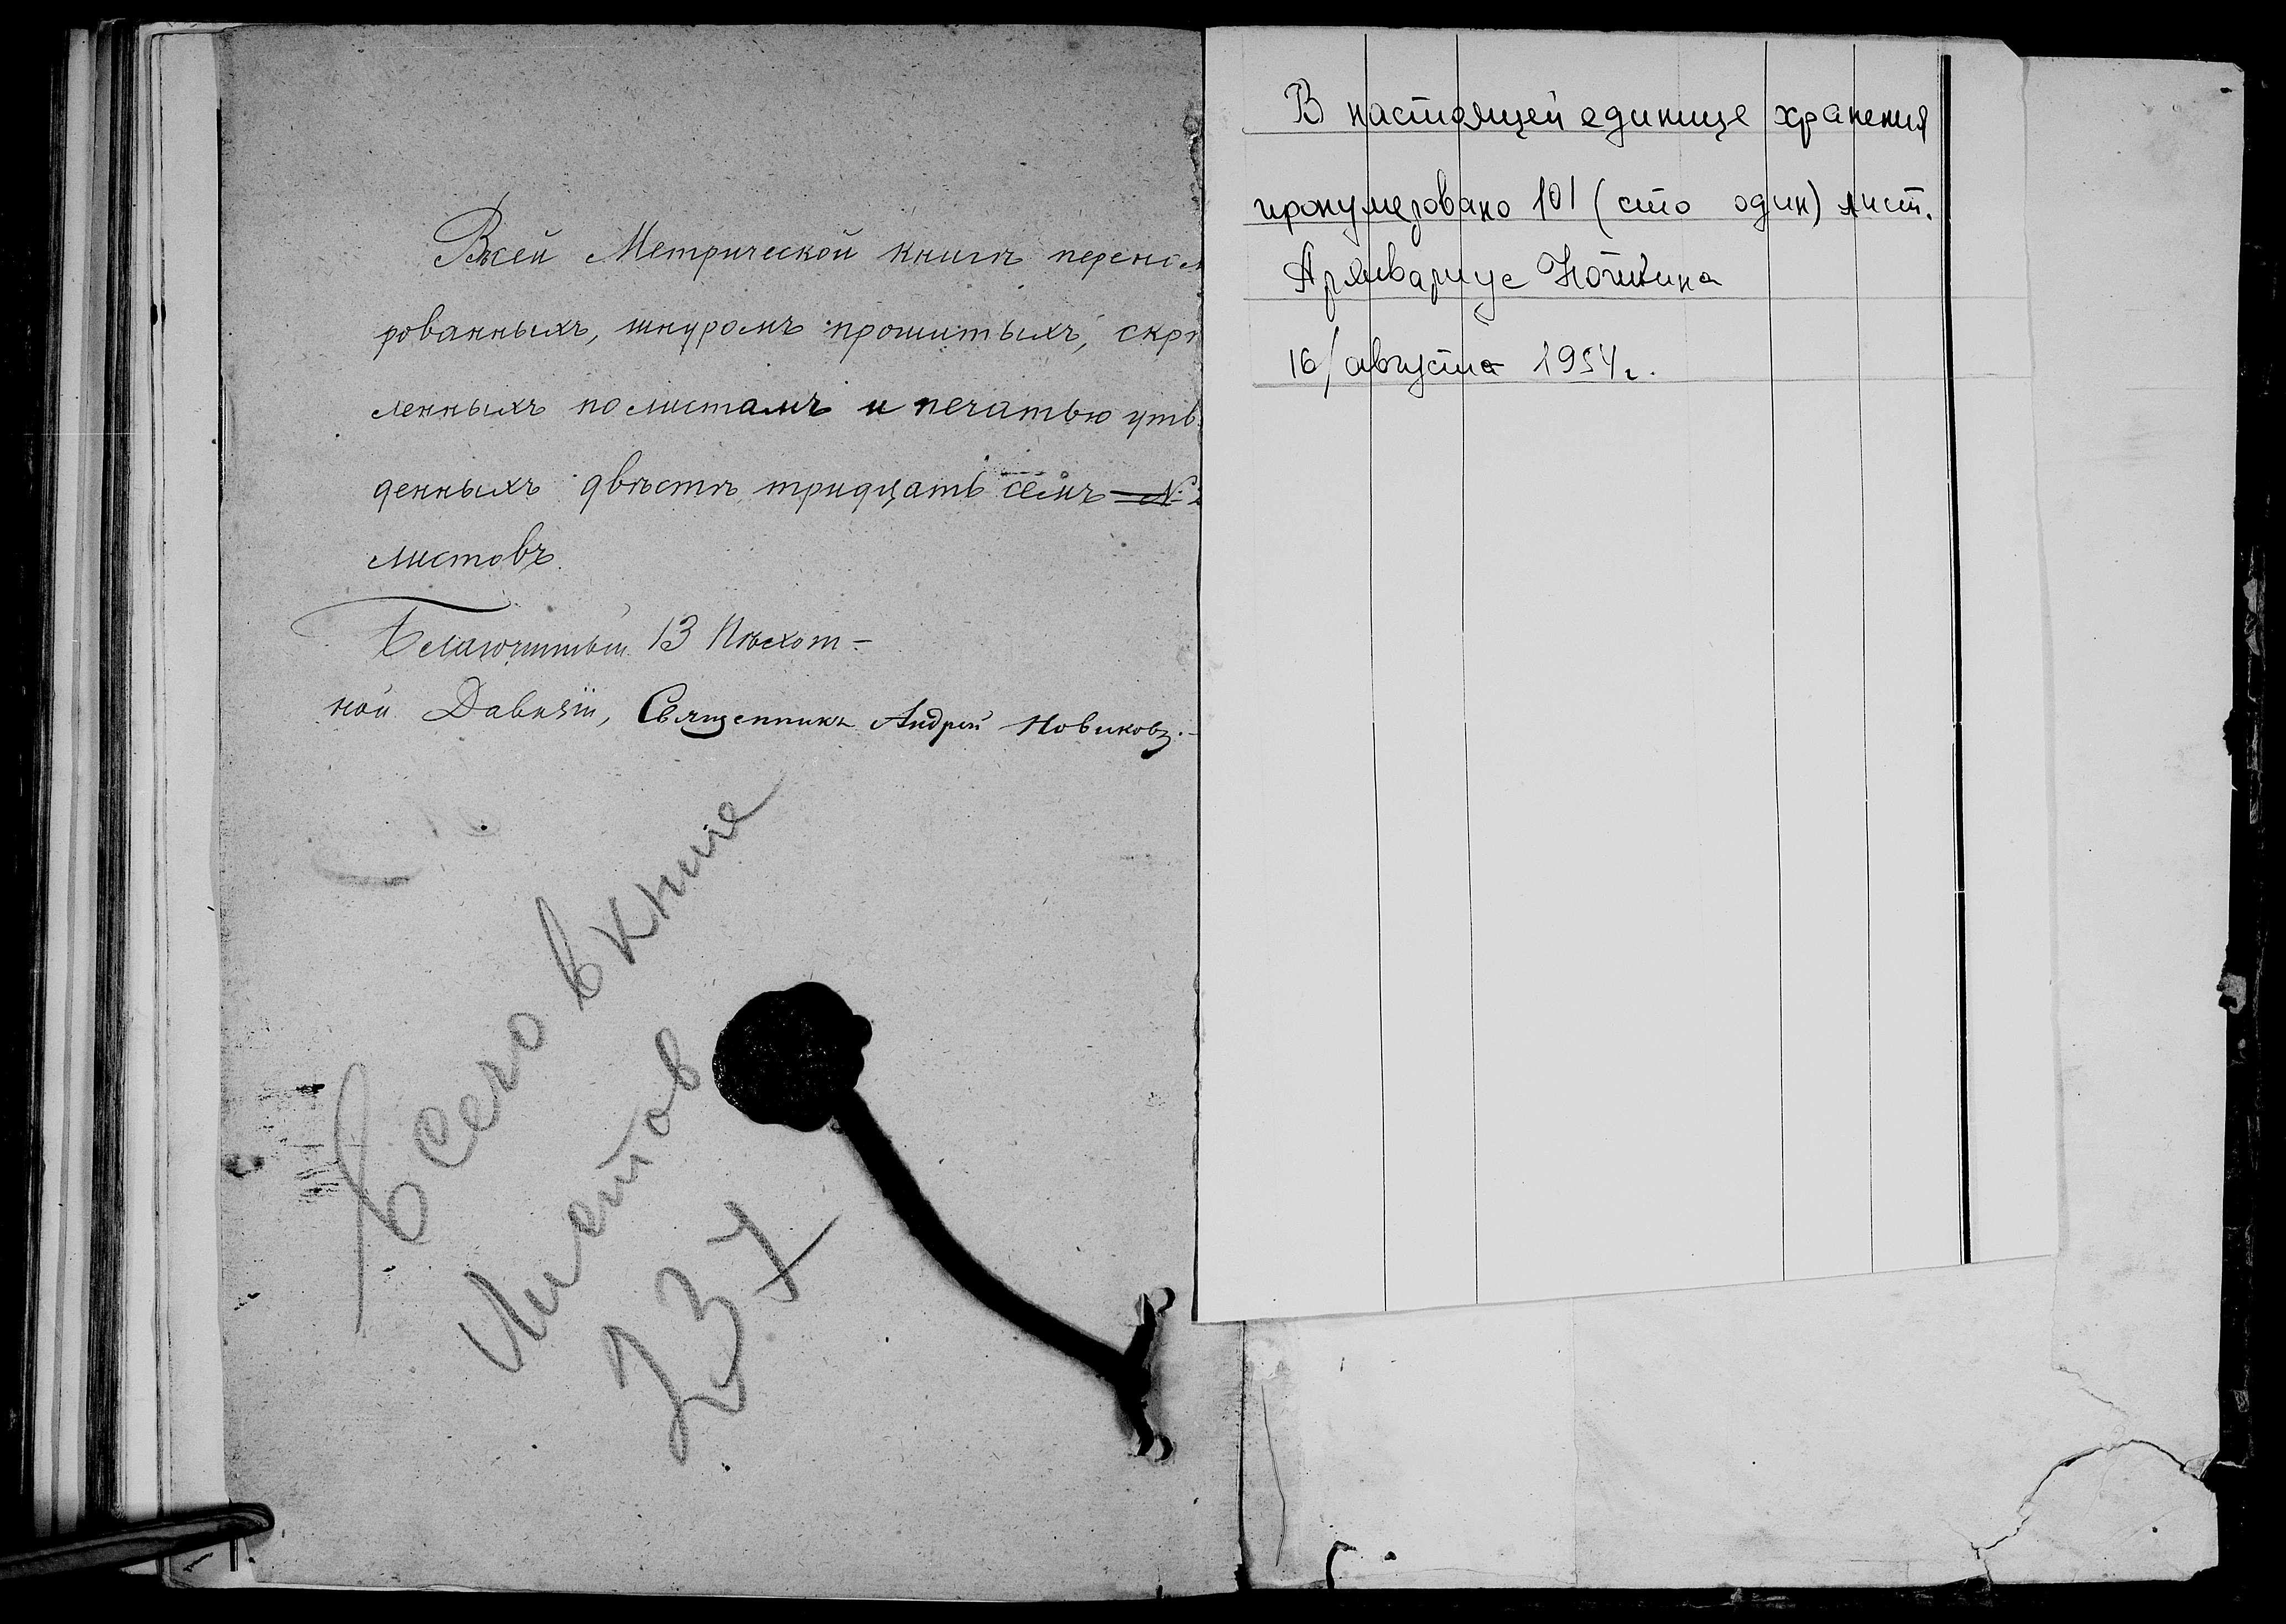 Всей Метрической книгѣ перено
рованныхъ, шнуромъ прошитыхъ, скрѣ
ленныхъ по листамъ и печатью утв
денныхъ двѣстѣ тридцать семъ № 2
листовъ.
Благочинный 13 Пѣхот-
ной Дивизіи, Священникъ Андрей Новиковъ.
Всего в книге
Листов
237
В настоящей единице хранения
пронумеровано 101 (сто один) лист.
Архивариус
16/августа 1954 г.